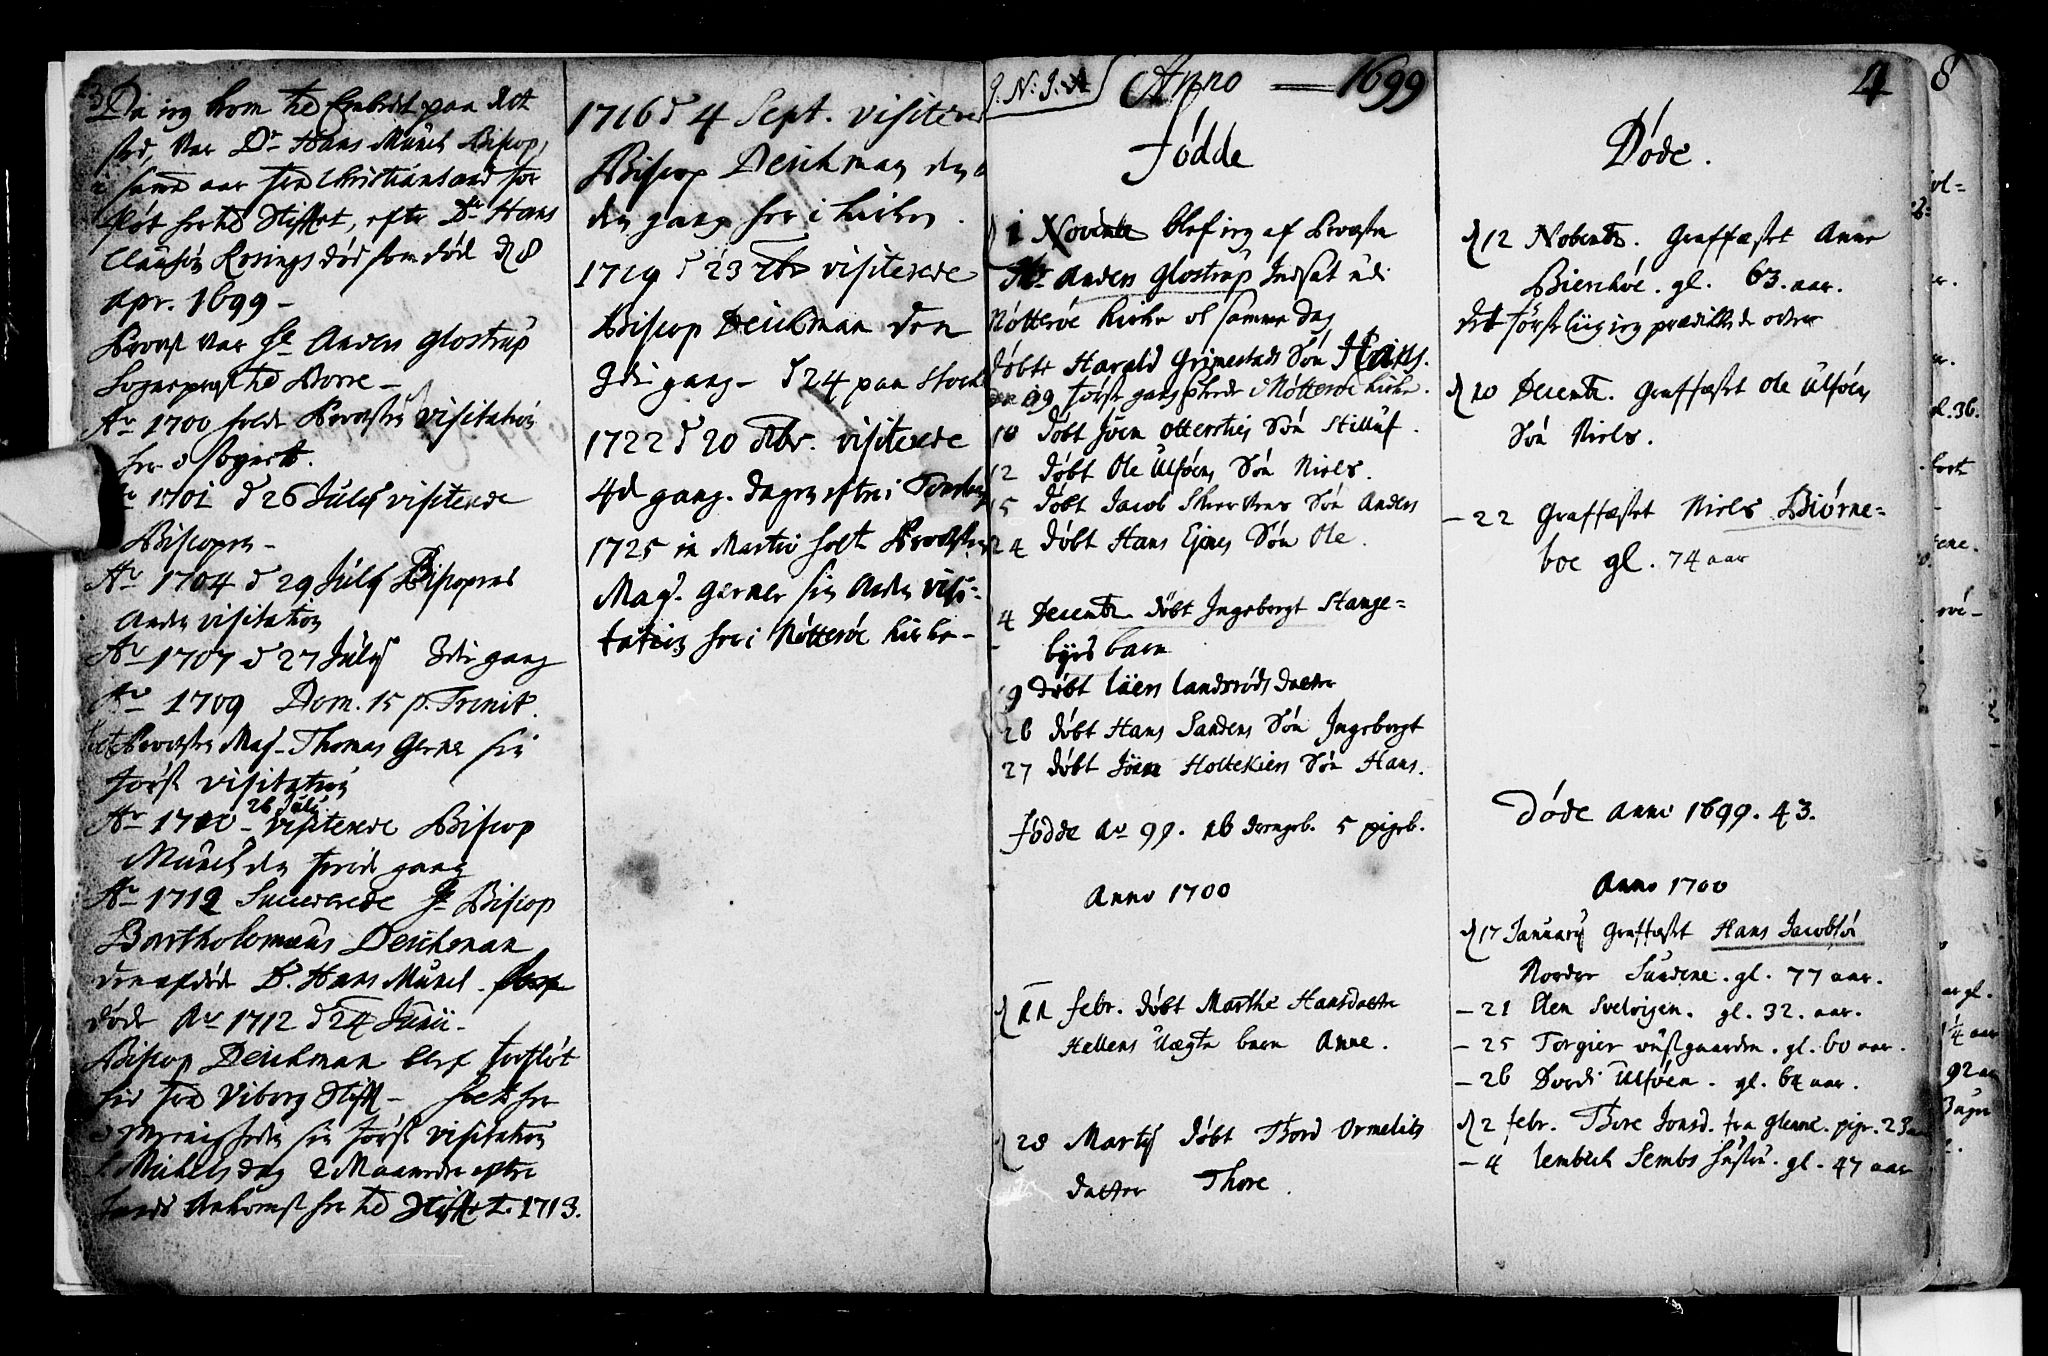 3
Da ieg kom til Embedet paa dette
sted, var Dr Hans Munch Biscop,
i samme aar fra Christiansand for
fløt her til Stifftet, efter Dr Hans
Clausøn Rosings død som døde d 8
Apr. 1699 -
Provst var Hr Anders Glostrup
Sogneprest til Borre -
Ao 1700 holdt Provsten Visitation
her
Ao 1701 d 26 July visiterede
Biscopen -
Ao 1704 d 29 July Biscopens
Anden visitation
Ao 1707 d 27 July 3die gang
Ao 1709 Dom. 15 p. Trinit.
Provsten Mag. Thomas Gerner sin
først visitation
26 July
Ao 1710 - visiterede Biscop
Munch den fierde gang
Ao 1712 Succederede Hr Biscop
Bartholomæus Deichman
den afdøde D. Hans Munch -
døde Ao 1712 d 24 Junii -
Biscop Deichman blef forfløt
hid fra Viborg Stifft -
sin først visitation
Michels dag 2 Maaneder efter
hands Ankomst her til Stifftet 1713.
1716 d 4 Sept. visitered
Biscop Deichman den
den gang her i kirken.
1719 d 23 visiterede
Biscop Deichman den
3die gang - d 24 paa Stoch
1722 d 20 visiterede
4d gang. dagen efter i Tønsberg
1725 in Martio holt Provsten
Mag. Gerner sin Anden visi-
tation her i Nøtterøe kirke -
J. N: J. A Anno 1699
Fødde
d 1 Novembr blef ieg af Provsten
Hr Anders Glostrup Indsat udi
Nøtterøe kirke ol samme dag
døbte Harald Grimestads Søn Hans.
19 først gang i Nøtterøe kirke.
10 døbt Joen Søn Stilluf.
12 døbt Ole Ulføens Søn Niels.
15 døbt Jacob Søn Anders
24 døbt Hans Søn Ole.
4 Decembr døbt Ingeborgt Stange=
byes barn
9 døbt Landsrøds datter
26 døbt Hans Sandens Søn Ingeborgt
27 døbt Joen Holtekiers Søn Hans.
Fødde Ao 99. 16 drengeb. 5 pigeb.
Anno 1700
d 11 febr. døbt Marthe Hansdatter
Hellens Uægte barn Anne.
d 28 Martij døbt Thord Ormelits
datter Thore.
4
Døde.
d 12 Novembr. Graffæstet Anne
Bierchøe. gl. 63. aar.
det første liig ieg prædikkede ofver
d 10 Decembr. Graffæstet Ole Ulføens
Søn Niels.
- 22 Graffæstet Niels Biørne=
boe gl. 74 aar
Døde Anno 1699. 43.
Anno 1700
d 17 January Graffæstet Hans Jacobsø
Norder Sundene. gl. 77 aar.
- 21 Elen Svelvigen. gl. 32. aar.
- 25 Torgier gl. 60 aar.
- 26 Sordi Ulføen. gl. 64 aar.
d 2 febr. Thore Jonsd. fra Glenne. pige. 23
- 4 Lembech Sembs hustru. gl. 47 aar
8
l. 36.
ar gl.
1 1/4 aar
92